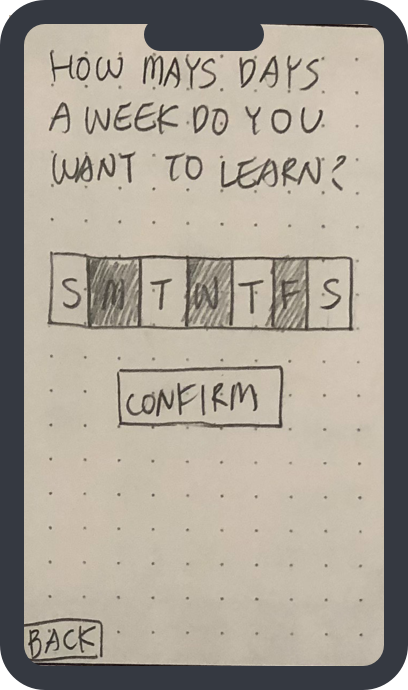 HOW MAYS DAYS
A WEEK DO YOU
WANT TO LEARN?
S M T W T F S
CONFIRM
BACK